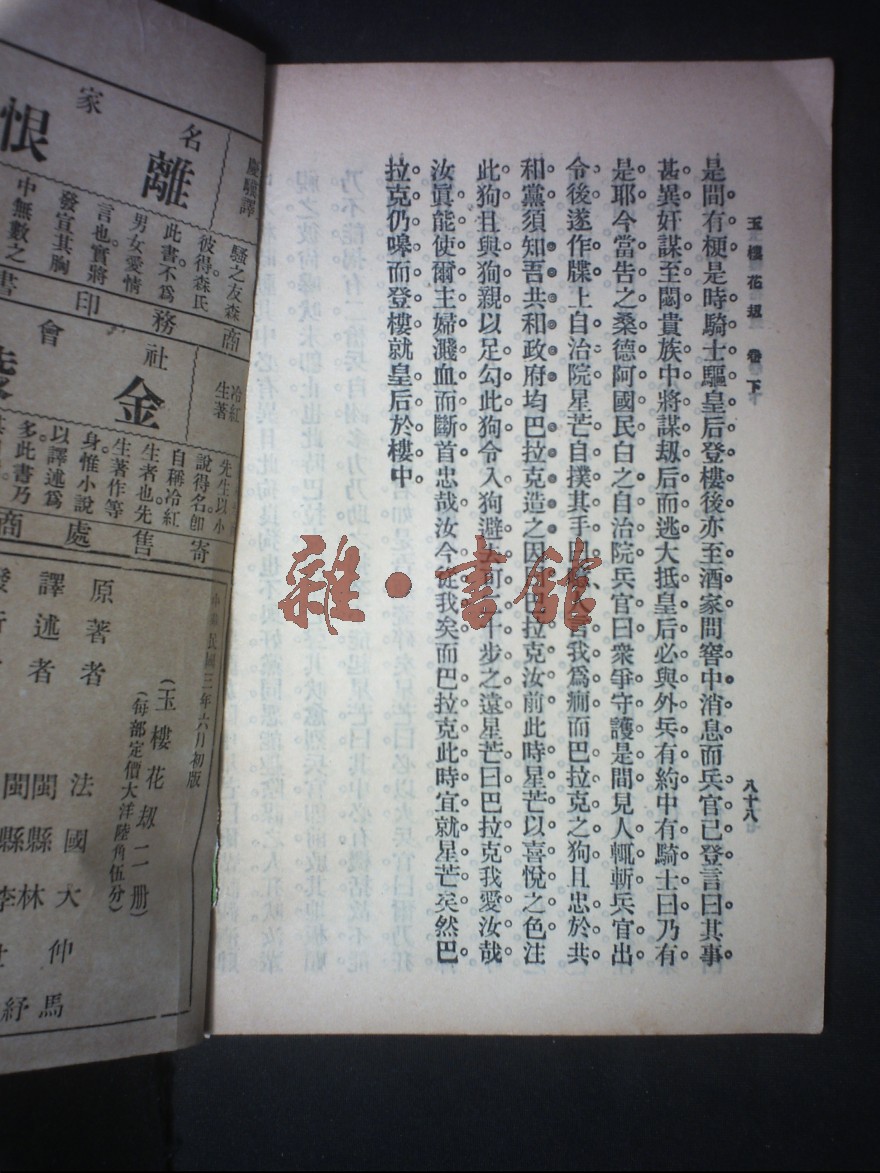 玉樓花刼 卷下
八十八
是間有梗是時騎士驅皇后登樓後亦至酒家問窖中消息而兵官已登言曰其事
甚異奸謀至閟貴族中將謀刼后而逃大抵皇后必與外兵有約中有騎士曰乃有
是耶今當告之桑德阿國民白之自治院兵官曰衆爭守護是間見人輒斬兵官出
令後遂作牒上自治院星芒自撲其手曰 人 我爲癇而巴拉克之狗且忠於共
和黨須知吾共和政府均巴拉克造之因 巴拉克汝前此時星芒以喜悅之色注
此狗且與狗親以足勾此狗令入狗避 可 十步之遠星芒曰巴拉克我愛汝哉
汝眞能使爾主婦濺血而斷首忠哉汝今從我矣而巴拉克此時宜就星芒矣然巴
拉克仍嗥而登樓就皇后於樓中
雜·書館
名家
離恨
騷之友森
彼得森氏
此書不爲
男女愛情
言也實將
發宣其胸
中無數之
商務印書
社會
冷紅生著
金
先生以小
說得名卽
自稱冷紅
生者也先
生著作等
身惟小說
以譯述爲
多此書乃
寄售處商
中華民國三年六月初版
(玉樓花刼二册)
(每部定價大洋陸角伍分)
原著者 法國大仲馬
譯述者 閩縣林紓
閩縣李世